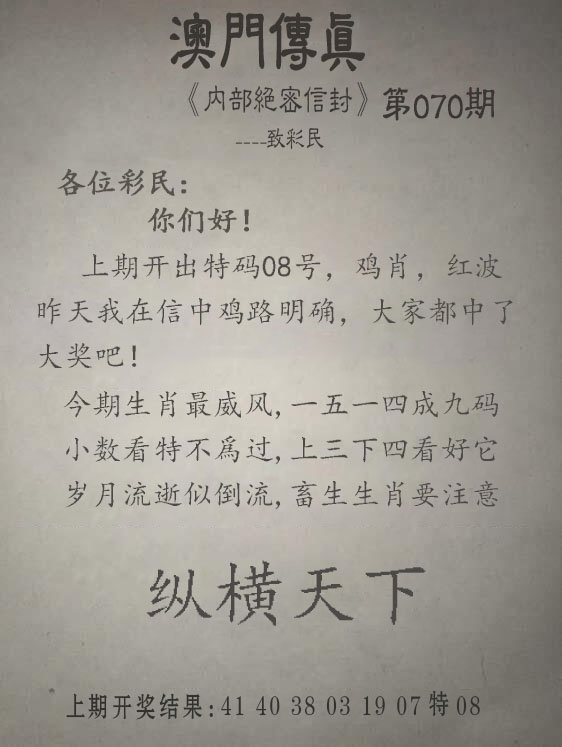 澳門傳眞
《内部絕密信封》第070期
----致彩民
各位彩民:
你们好!
上期开出特码08号，鸡肖，红波
昨天我在信中鸡路明确，大家都中了
大奖吧!
今期生肖最威风,一五一四成九码
小数看特不爲过,上三下四看好它
岁月流逝似倒流,畜生生肖要注意
纵横天下
上期开奖结果:41 40 38 03 19 07特08